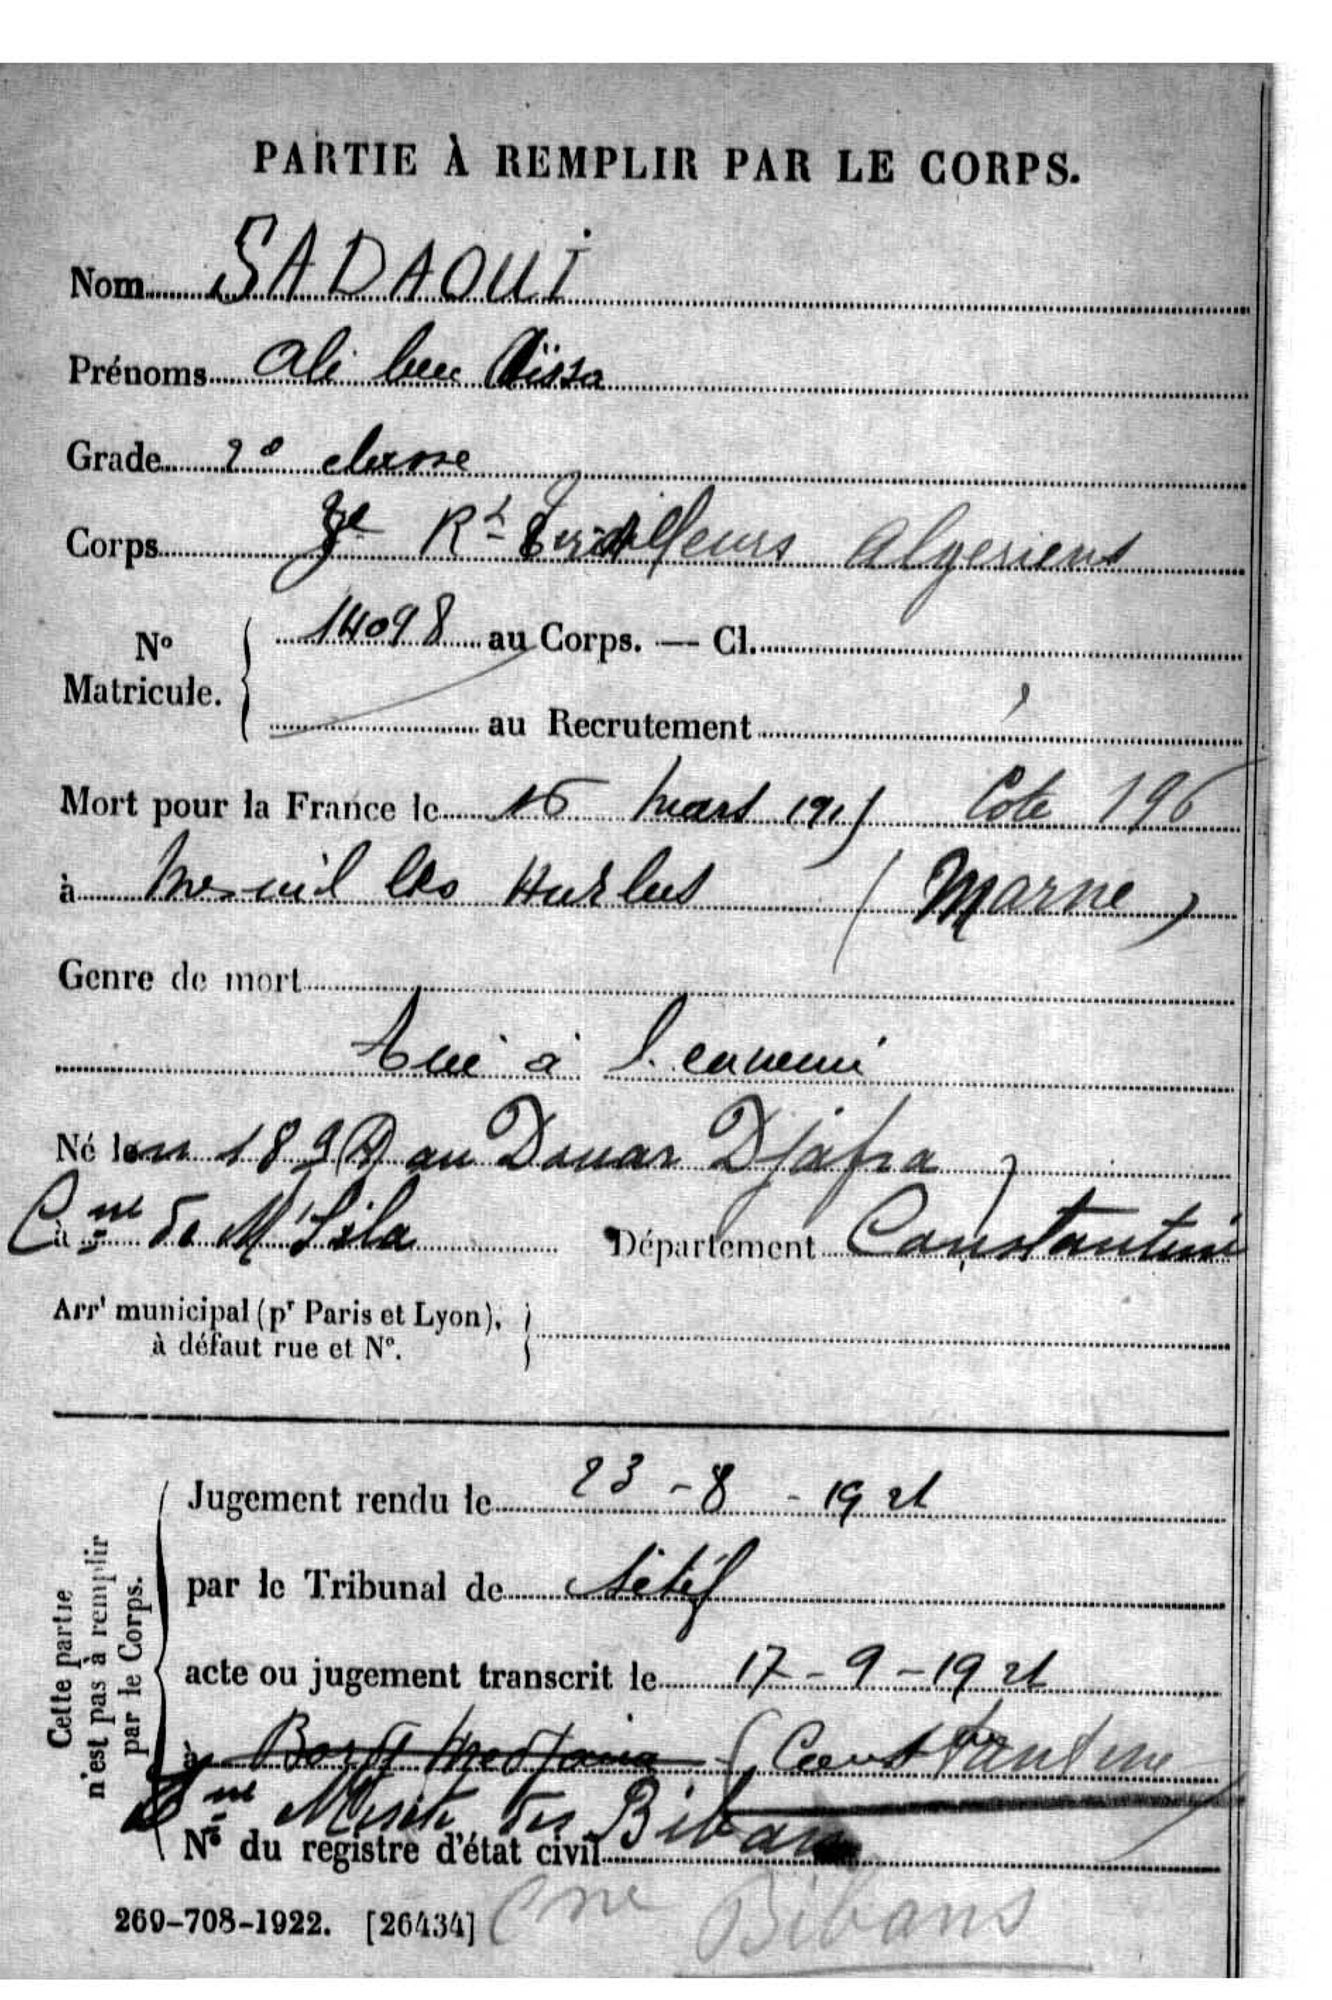 PARTIE À REMPLIR PAR LE CORPS.
Nom SADAOUI
Prénoms Ali ben Aïssa
Grade 2e classe
Corps Rt tirailleurs Algeriens
No Matricule. 14098 au Corps. — Cl.
au Recrutement
Mort pour la France le 16 Mars 1915 Cote 196
à Mesnil les Hurlus (Marne)
Genre de mort
tué à l'ennemi
Né en 189 au Douar Djafra
Cne de M'Sila Département Constantine
Arrt municipal (pr Paris et Lyon),
à défaut rue et No.
Cette partie
n'est pas à remplir
par le Corps.
Jugement rendu le 23 - 8 - 1921
par le Tribunal de Sétif
acte ou jugement transcrit le 17 - 9 - 1921
à Bordj Medjana (Constantine)
Cne Mixte des Bibans
No du registre d'état civil
269-708-1922. [26434] Cne Bibans